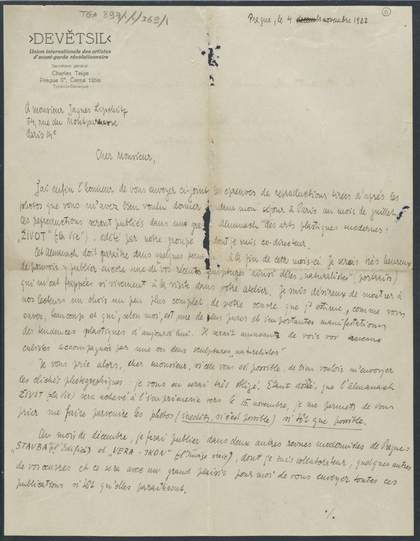 TGA 897/1/1/369/1
6
Prague, le 4 novembre 1922
›DEVĚTSIL‹
Union internationale des artistes
d'avant-garde révolutionnaire
Secrétaire général
Charles Teige
Prague II°, Černá 12a
Tchéco-Slovaquie
A monsieur Jaques Lipschitz
54, rue du Montparnasse
Paris 14e
Cher monsieur,
J'ai enfin l'honneur de vous envoyer ci-joint les épreuves de reproductions tirées d'après les
photos que vous m'avez bien voulu donner de mon séjour à Paris au mois de juillet.
Les reproductions seront publiés dans une almanach des arts plastiques modernes:
"ŽIVOT" (la vie): édité par notre groupe dont je suis co-directeur.
Cet almanach doit paraître dans à la fin de cette mois-ci je serais très heureux
de pouvoir y publier encore une de vos récentes sculptures ainsi que "naturalistes", portraits,
qui m'ont frappées si vivement à la visite dans votre atelier. Je suis désireux de montrer à
nos lecteurs un choix un peu plus complet de votre œuvre que j'estime, comme vous
savez, beaucoup et qui, selon moi, est une des plus pures et importantes manifestations
des tendances plastiques d'aujourd'hui. Il serait de voir vos œuvres
cubistes accompagnés par une ou deux sculptures naturalistes.
Je vous prie alors, cher monsieur, si cela vous est possible de bien vouloir m'envoyer
les clichés photographiques je vous en serai très obligé. Étant donné que l'almanach
ŽIVOT (la vie) sera achevé à l'imprimerie vers le 15 novembre, je me permets de vous
prier me faire parvenir les photos (, si c'est possible) si tôt que possible.
Au mois de décembre, je ferai publier dans deux autres revues modernistes de Prague:
"STAVBA" (l'Edifice) et "VERA-IKON" (l'Image vraie), dont je suis collaborateur, quelques autres
de vos œuvres et ce sera avec un grand plaisir pour moi de vous envoyer toutes ces
publications si tôt qu'elles paraîtront.